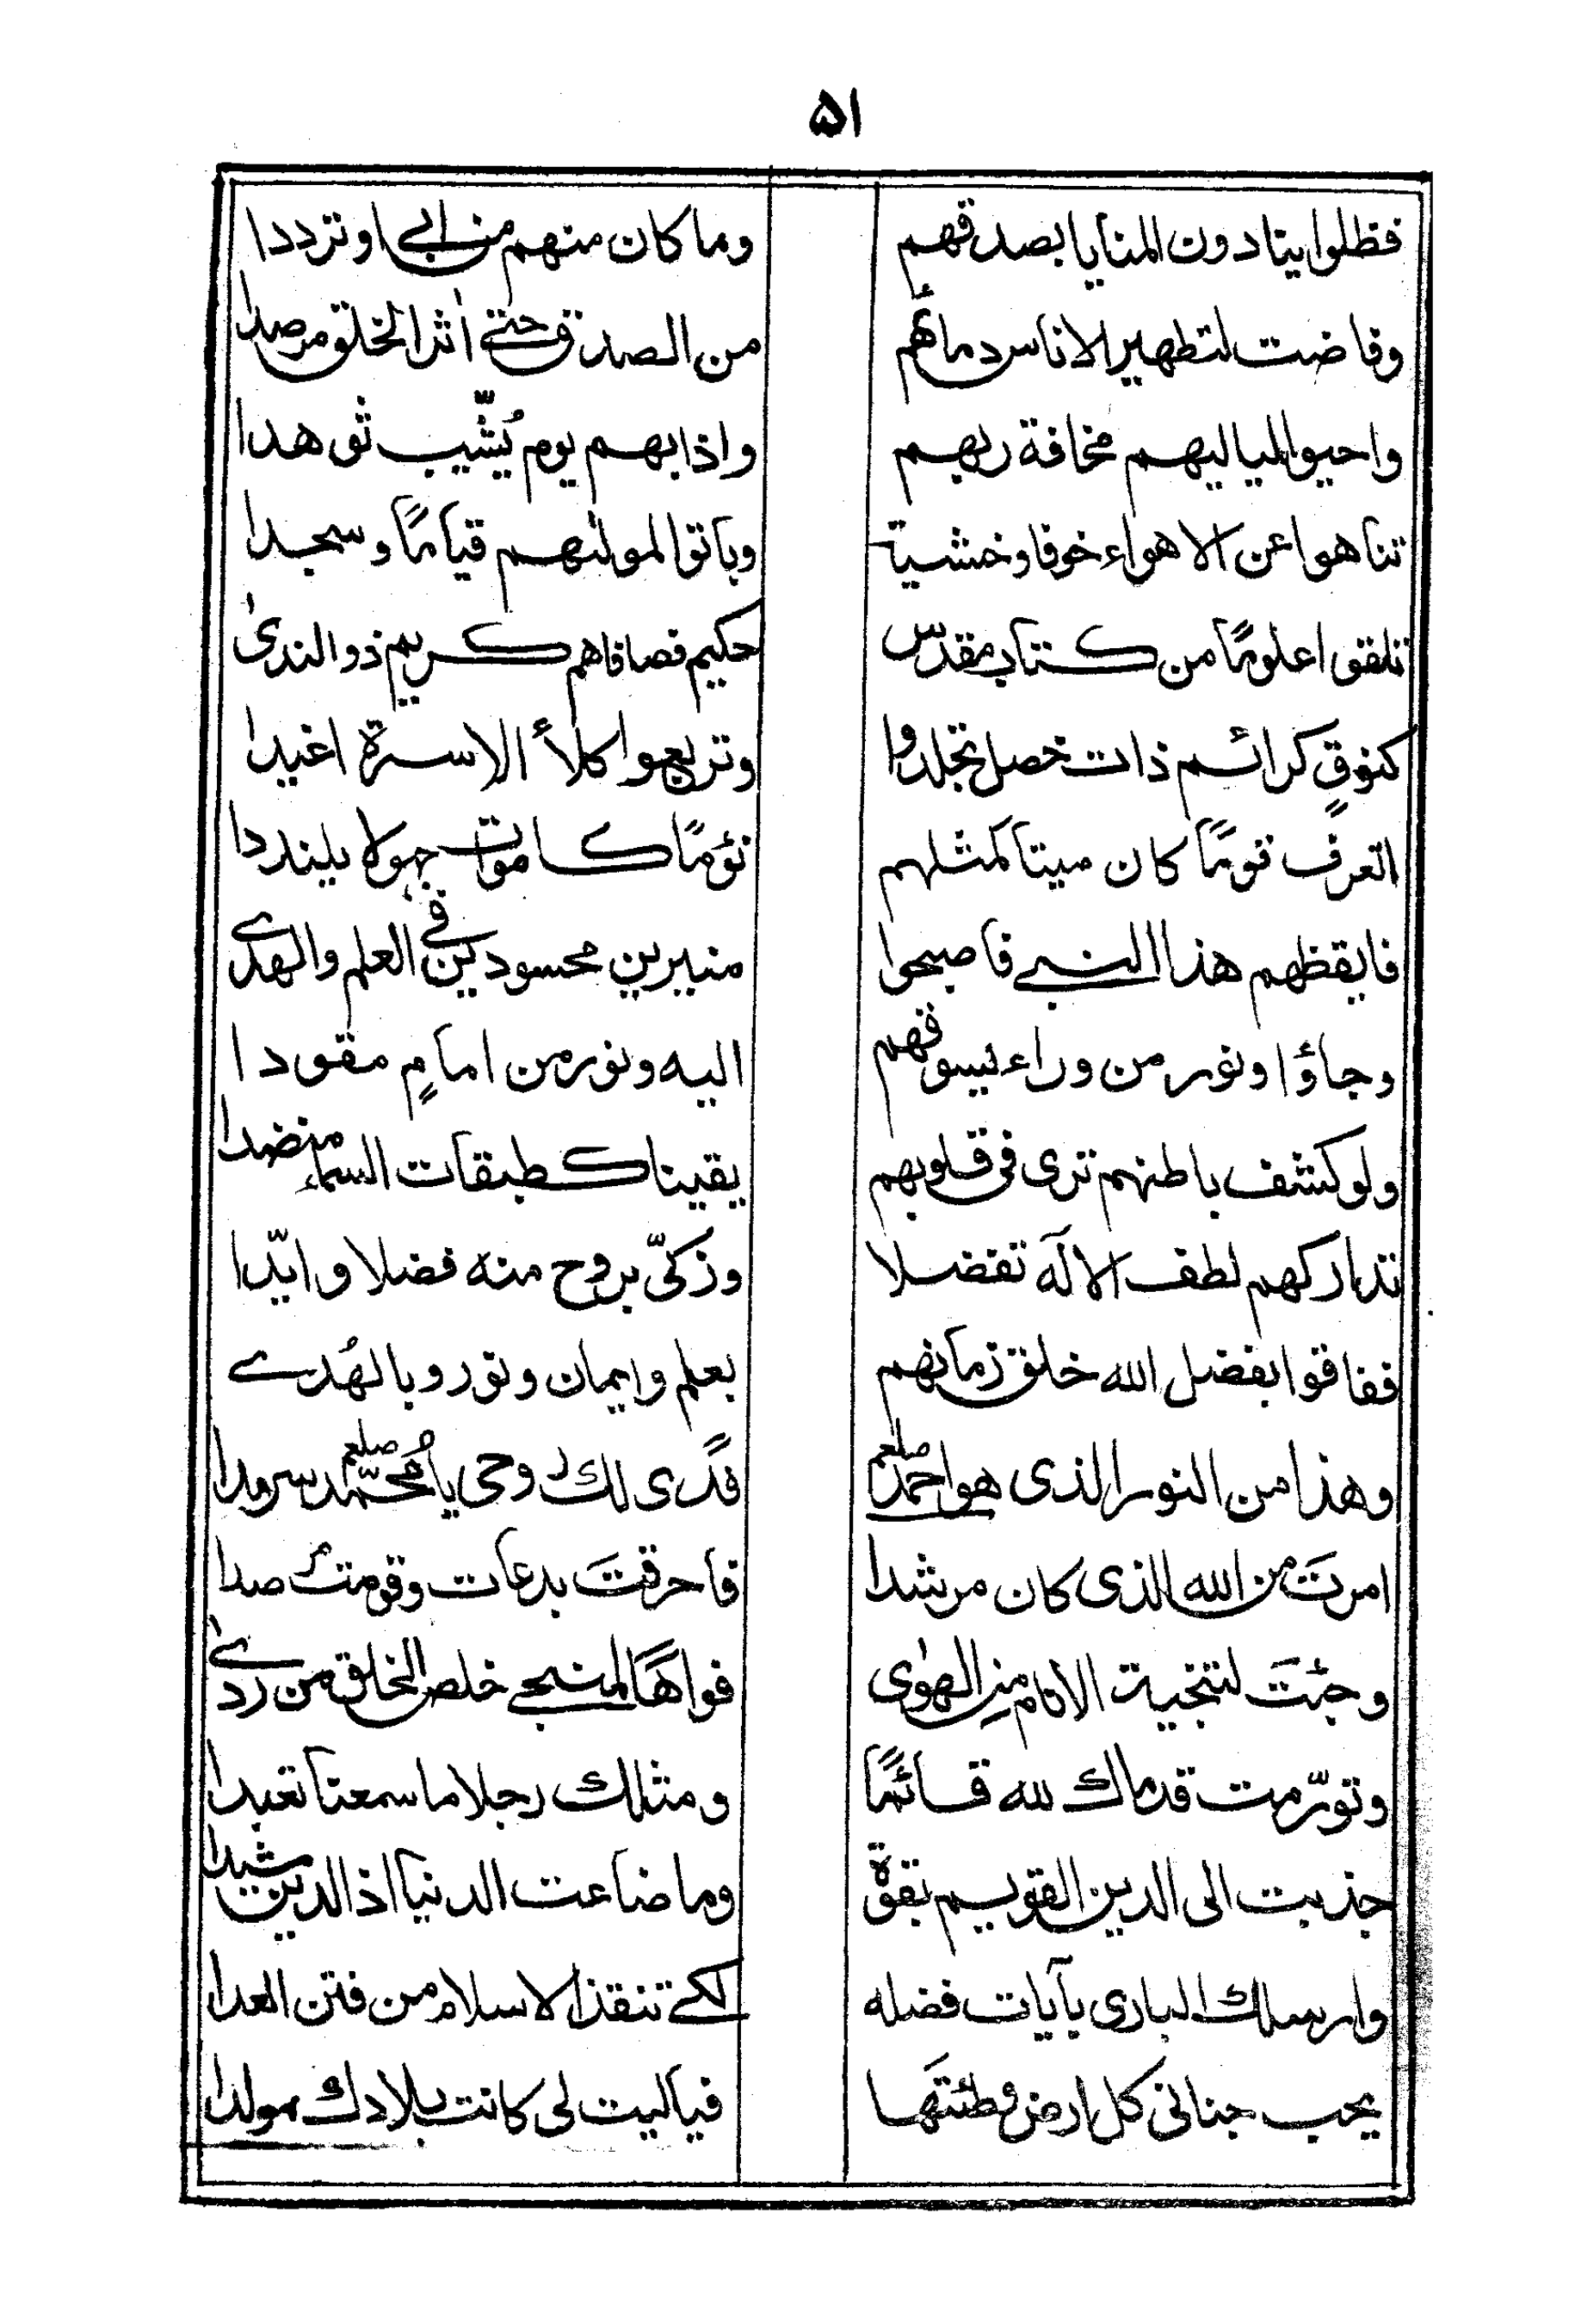 ۵۱
فظلوا ينادون المنايا بصدقهم وما كان منهم من ابى او ترددا
وفاضت لتطهير الاناس دماءهم من الصدق حتى اثر الخلق مرصدا
واحيوا لياليهم مخافة ربهم واذابهم يوم يُشّيب ثوهدا
تناهوا عن الاهواء خوفا وخشية وباتوا لمولٰهم قيامًا وسجدا
تلقوا علومًا من كتاب مقدس حكيم فصافاهم كريم ذو الندىٰ
كنوقٍ كرائم ذات خصل تجلدوا وتربعوا كلأ الاسرة اغيدا
اتعرف قومًا كان ميتا كمثلهم نؤمًا كاموات جهولا يلنددا
فايقظهم هذا النبى فاصبحوا منيرين محسودين فى العلم والهدى
وجاؤا ونور من وراء يسوقهم اليه ونور من امامٍ مقودا
ولو كشف باطنهم ترى فى قلوبهم يقينا كطبقات السماء منضدا
تداركهم لطف الالٓه تفضلا وزكىّ بروح منه فضلا وايّدا
ففاقوا بفضل الله خلق زمانهم بعلم وايمان ونور وبالهُدى
وهذا من النور الذى هو احمدؐ صلعم فدًى لك روحى يا مُحمّد صلعم سرمدا
امرتَ من الله الذى كان مرشدا فاحرقتَ بدعات وقومتَ مرصدا
وجئتَ لتنجية الانام من الهوٰى فواهًا لمنجى خلص الخلق من ردىٰ
وتورّمت قدماك لله قائمًا ومثلك رجلا ما سمعنا تعبدا
جذبت الى الدين القويم بقوة وما ضاعت الدنيا اذ الدين شيدا
وارسلك البارى بآيات فضله لكى تنقذ الاسلام من فتن العدا
يحب جنانى كل ارض وطئتَها فيا ليت لى كانت بلادك مولدا